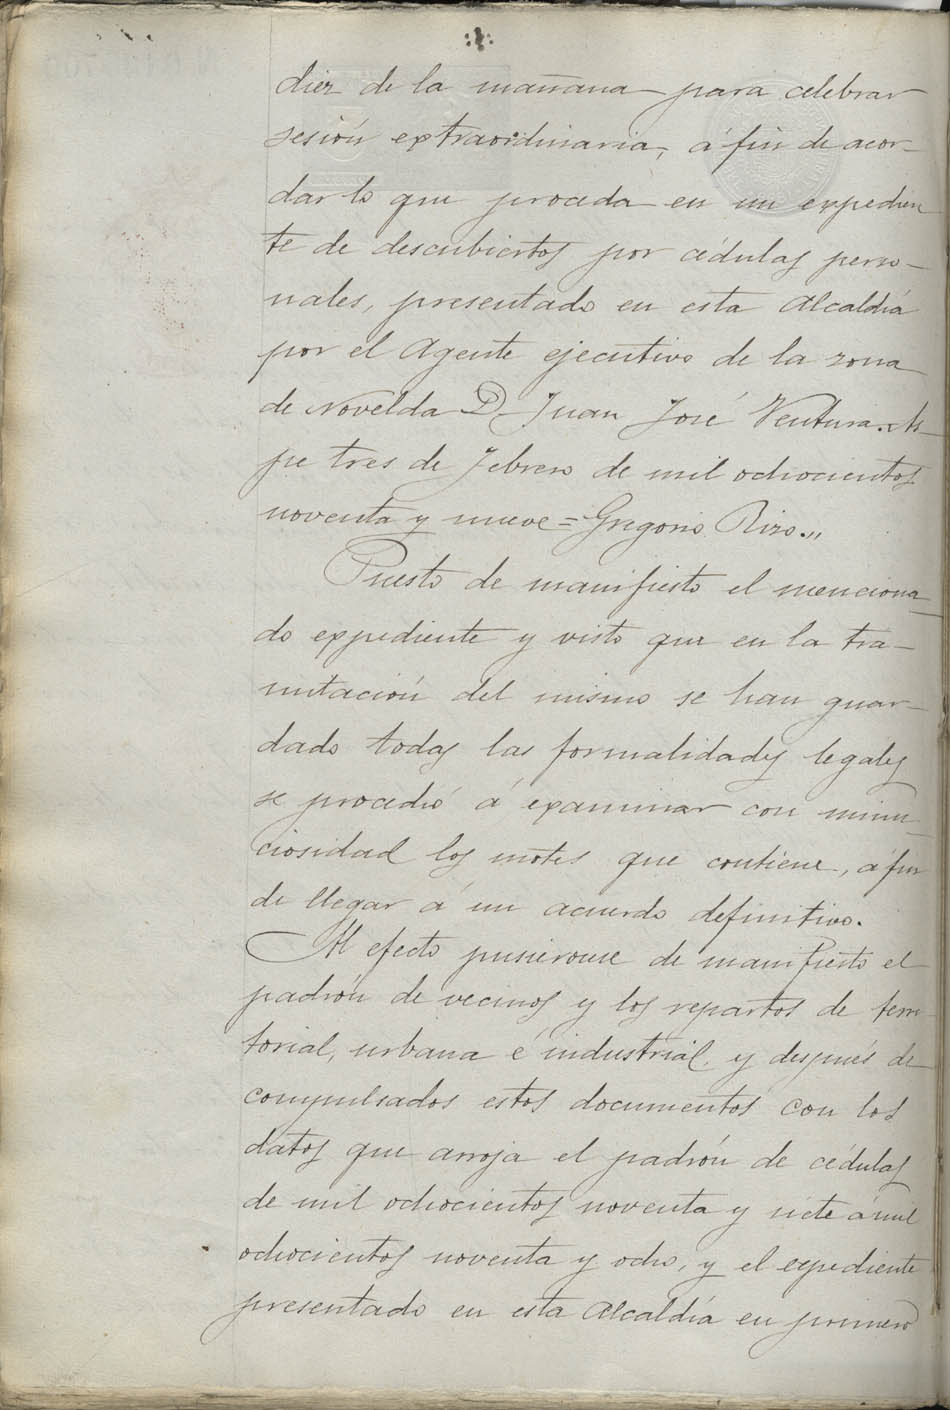 diez de la mañana para celebrar
sesión extraordinaria, á fin de acor-
dar lo que proceda en un expedien
te de descubiertos por cédulas perso-
nales, presentado en esta Alcaldía
por el Agente ejecutivo de la zona
de Novelda D. Juan José Ventura. As-
pe tres de Febrero de mil ochocientos
noventa y nueve = Gregorio Rizo.„
Puesto de manifiesto el menciona-
do expediente y visto que en la tra-
mitación del mismo se han guar-
dado todas las formalidades legales
se procedió á examinar con minu-
ciosidad los motes que contiene, á fin
de llegar á un acuerdo definitivo.
Al efecto pusieronse de manifiesto el
padrón de vecinos y los repartos de terri-
torial, urbana é industrial, y después de
compulsados estos documentos con los
datos que arroja el padrón de cédulas
de mil ochocientos noventa y siete á mil
ochocientos noventa y ocho, y el expediente
presentado en esta Alcaldía en primero